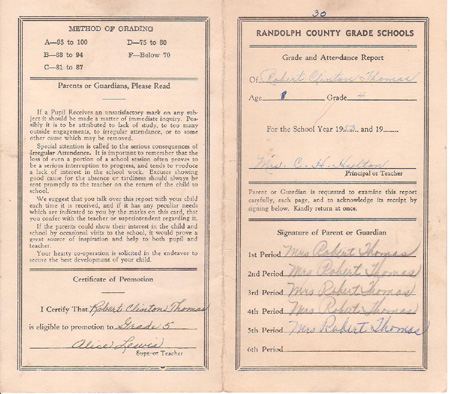 METHOD OF GRADING
A—95 to 100 D—75 to 80
B—88 to 94 F—Below 70
C—81 to 87
Parents or Guardians, Please Read
If a Pupil Receives an unsatisfactory mark on any sub-
ject it should be made a matter of immediate inquiry. Possi-
bly it is to be attributed to lack of study, to too many
outside engagements, to irregular attendance, or to some
other cause which may be removed.
Special attention is called to the serious consequences of
Irregular Attendance. It is important to remember that the
loss of even a portion of a school session often proves to
be a serious interruption to progress, and tends to produce
a lack of interest in the school work. Excuses showing
good cause for the absence or tardiness should always be
sent promptly to the teacher on the return of the child to
school.
We suggest that you talk over this report with your child
each time it is received, and if it has any peculiar needs
which are indicated to you by the marks on this card, that
you confer with the teacher or superintendent regarding it.
If the parents could show their interest in the child and
school by occasional visits to the school, it would prove a
great source of inspiration and help to both pupil and
teacher.
Your hearty co-operation is solicited in the endeavor to
secure the best development of your child.
Certificate of Promotion
I Certify That Robert Clinton Thomas
is eligible to promotion to Grade 5
Alice Lewis
Supt. or Teacher
30
RANDOLPH COUNTY GRADE SCHOOLS
Grade and Attendance Report
Of Robert Clinton Thomas
Age 8 Grade 4
For the School Year 19 and 19
Mrs. C. H. Hylton
Principal or Teacher
Parent or Guardian is requested to examine this report
carefully, each page, and to acknowledge its receipt by
signing below. Kindly return at once.
Signature of Parent or Guardian
1st Period Mrs Robert Thomas
2nd Period Mrs Robert Thomas
3rd Period Mrs Robert Thomas
4th Period Mrs Robert Thomas
5th Period Mrs Robert Thomas
6th Period